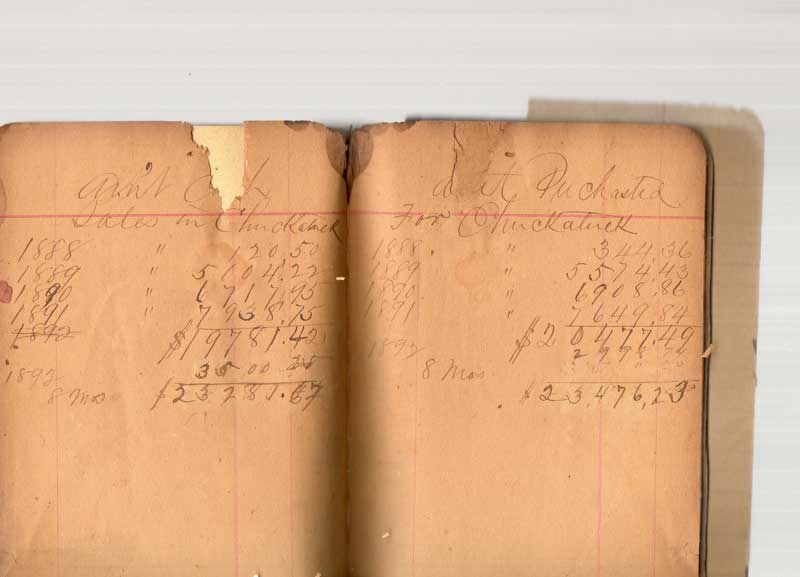 Am't
Sales in Chuckatuck
1888 " 120.50
1889 " 5004.22
1890 " 6717.95
1891 " 7938.75
1892 $19781.42
3500
1892
8 Mos $23281.67
Puchasted
For Chuckatuck
1888 " 344.36
1889 " 5574.43
1890 " 6908.86
1891 " 7649.84
$20477.49
1892
8 Mos
$23476,23